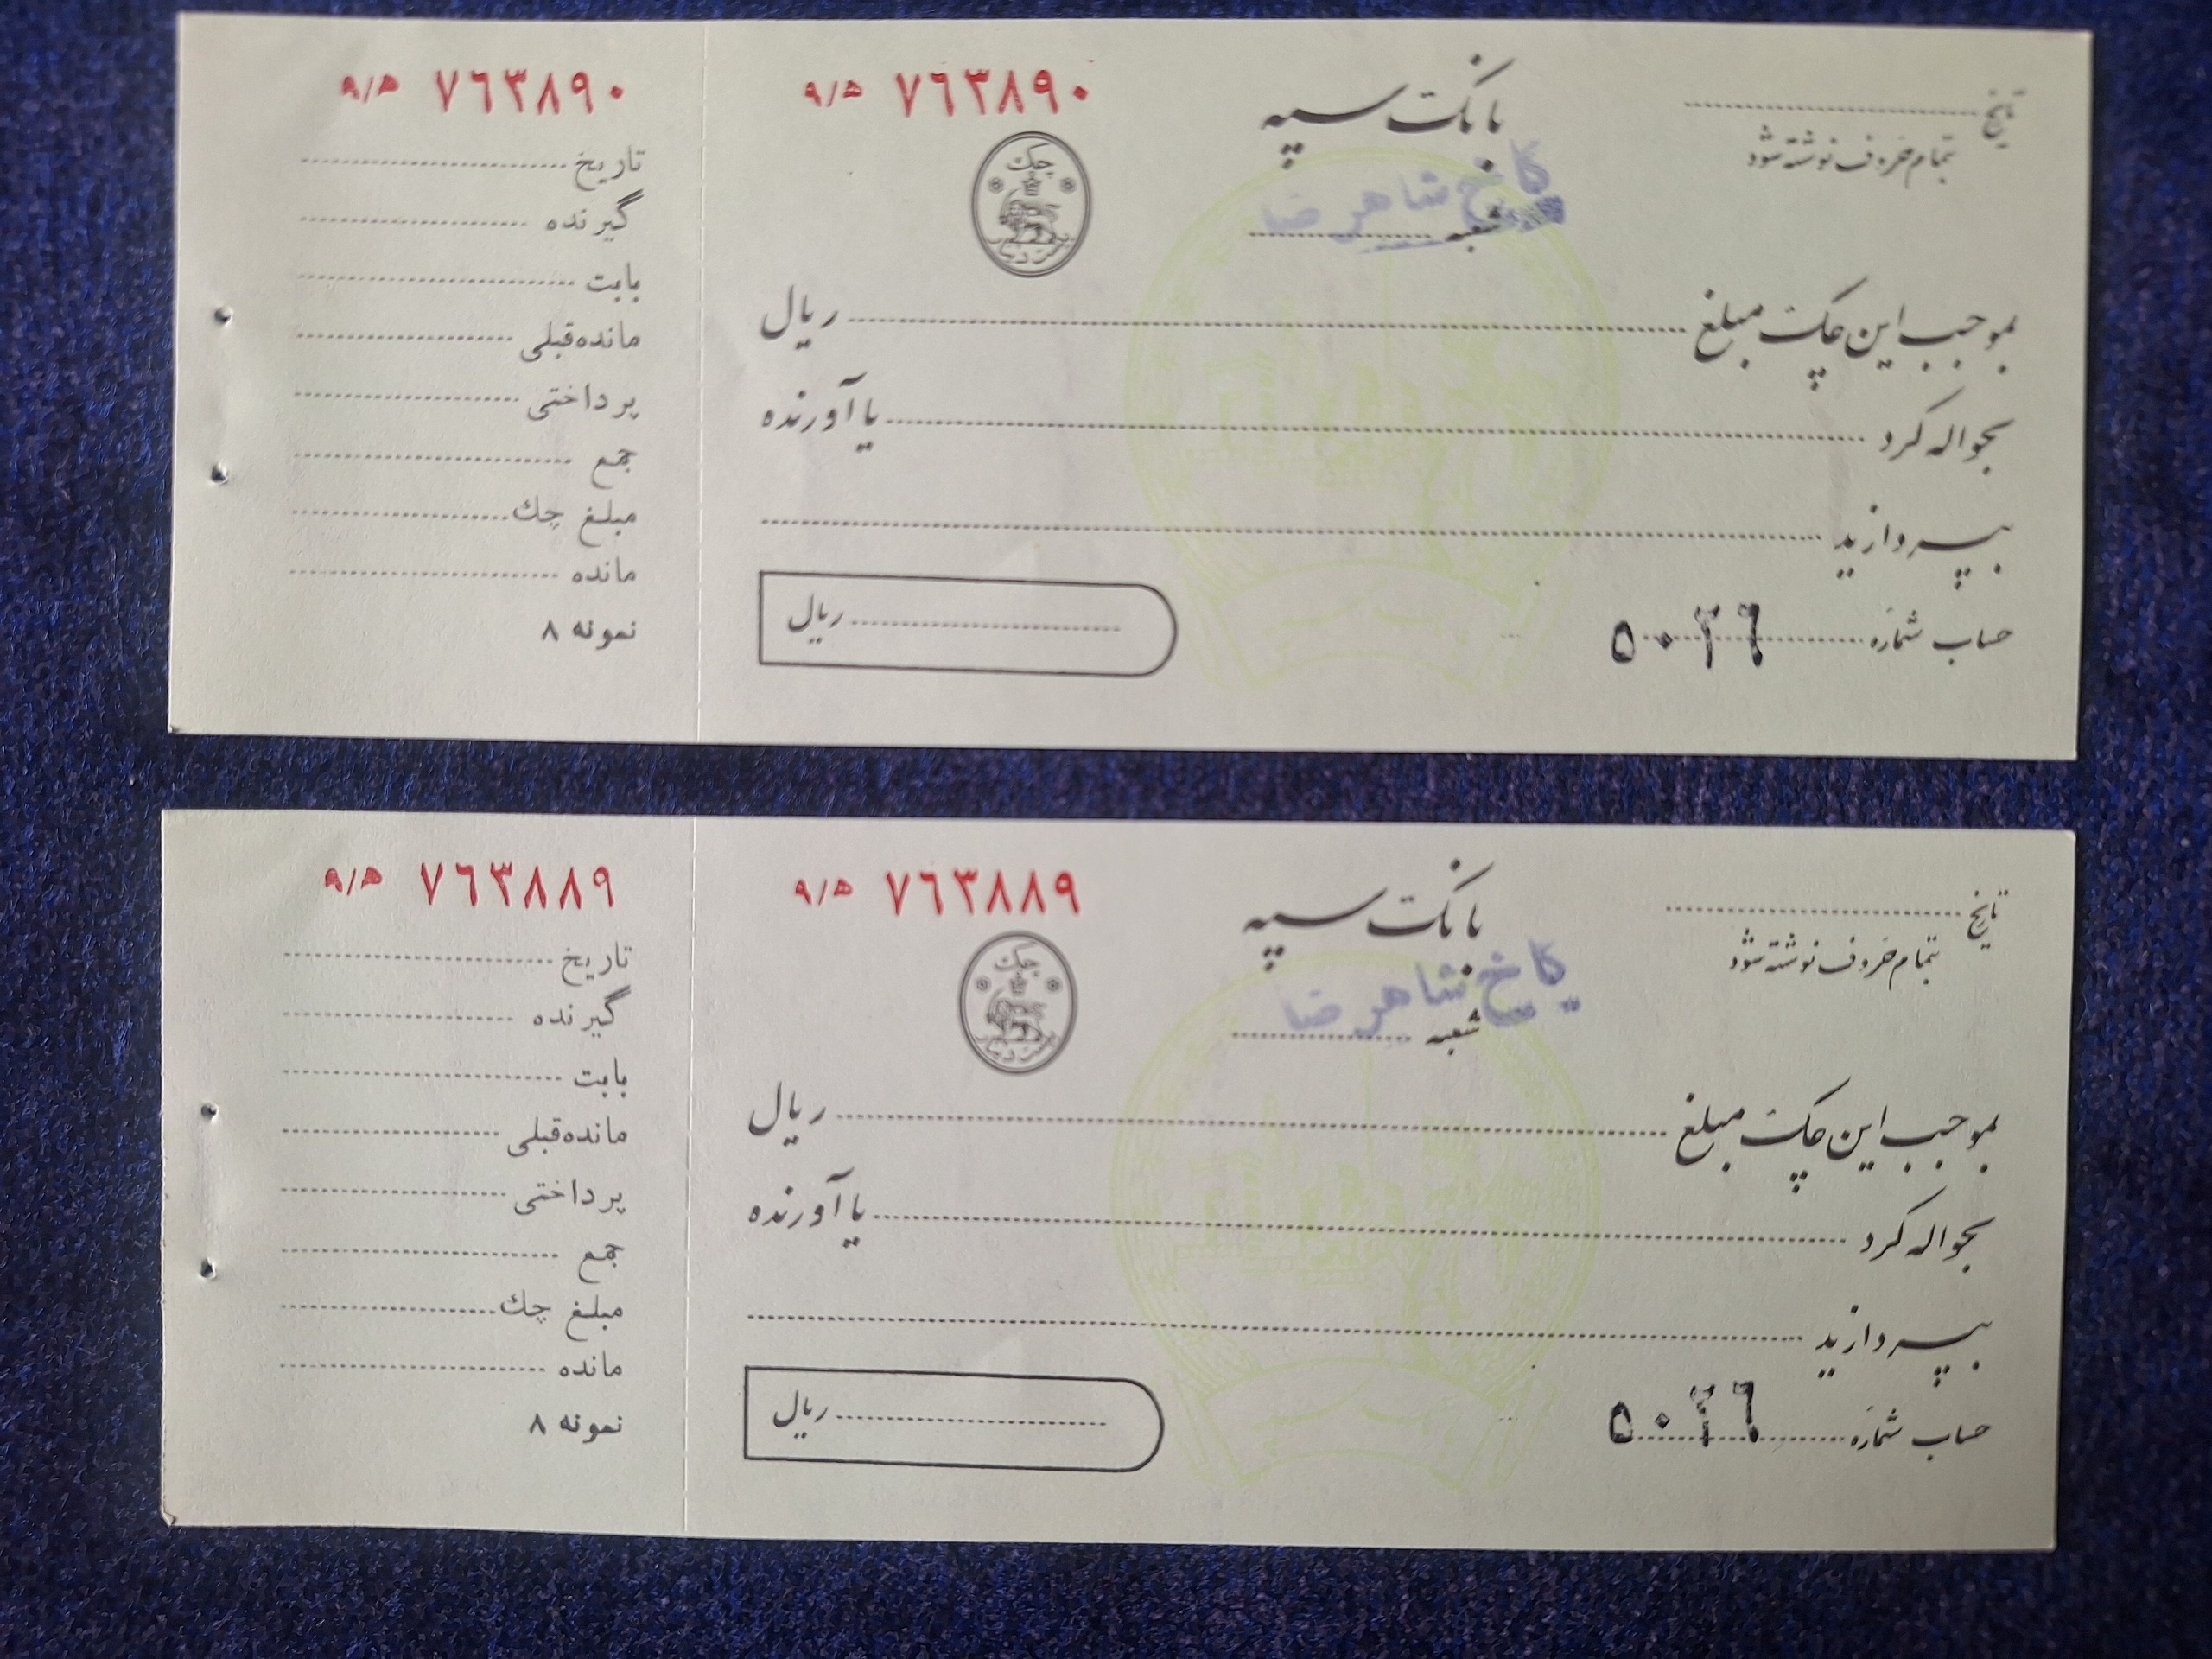 ۷۶۳۸۹۰ ۹/ه
تاریخ
گیرنده
بابت
مانده‌قبلی
پرداختی
جمع
مبلغ چك
مانده
نمونه ۸
تاریخ
بتمام حروف نوشته شود
بانک سپه
کاخ شاهرضا
شعبه
۷۶۳۸۹۰ ۹/ه
چک
بموجب این چک مبلغ ریال
بحواله کرد یا آورنده
بپردازید
حساب شماره ۵۰۲۶
ریال
۷۶۳۸۸۹ ۹/ه
تاریخ
گیرنده
بابت
مانده‌قبلی
پرداختی
جمع
مبلغ چك
مانده
نمونه ۸
تاریخ
بتمام حروف نوشته شود
بانک سپه
کاخ شاهرضا
شعبه
۷۶۳۸۸۹ ۹/ه
چک
بموجب این چک مبلغ ریال
بحواله کرد یا آورنده
بپردازید
حساب شماره ۵۰۲۶
ریال